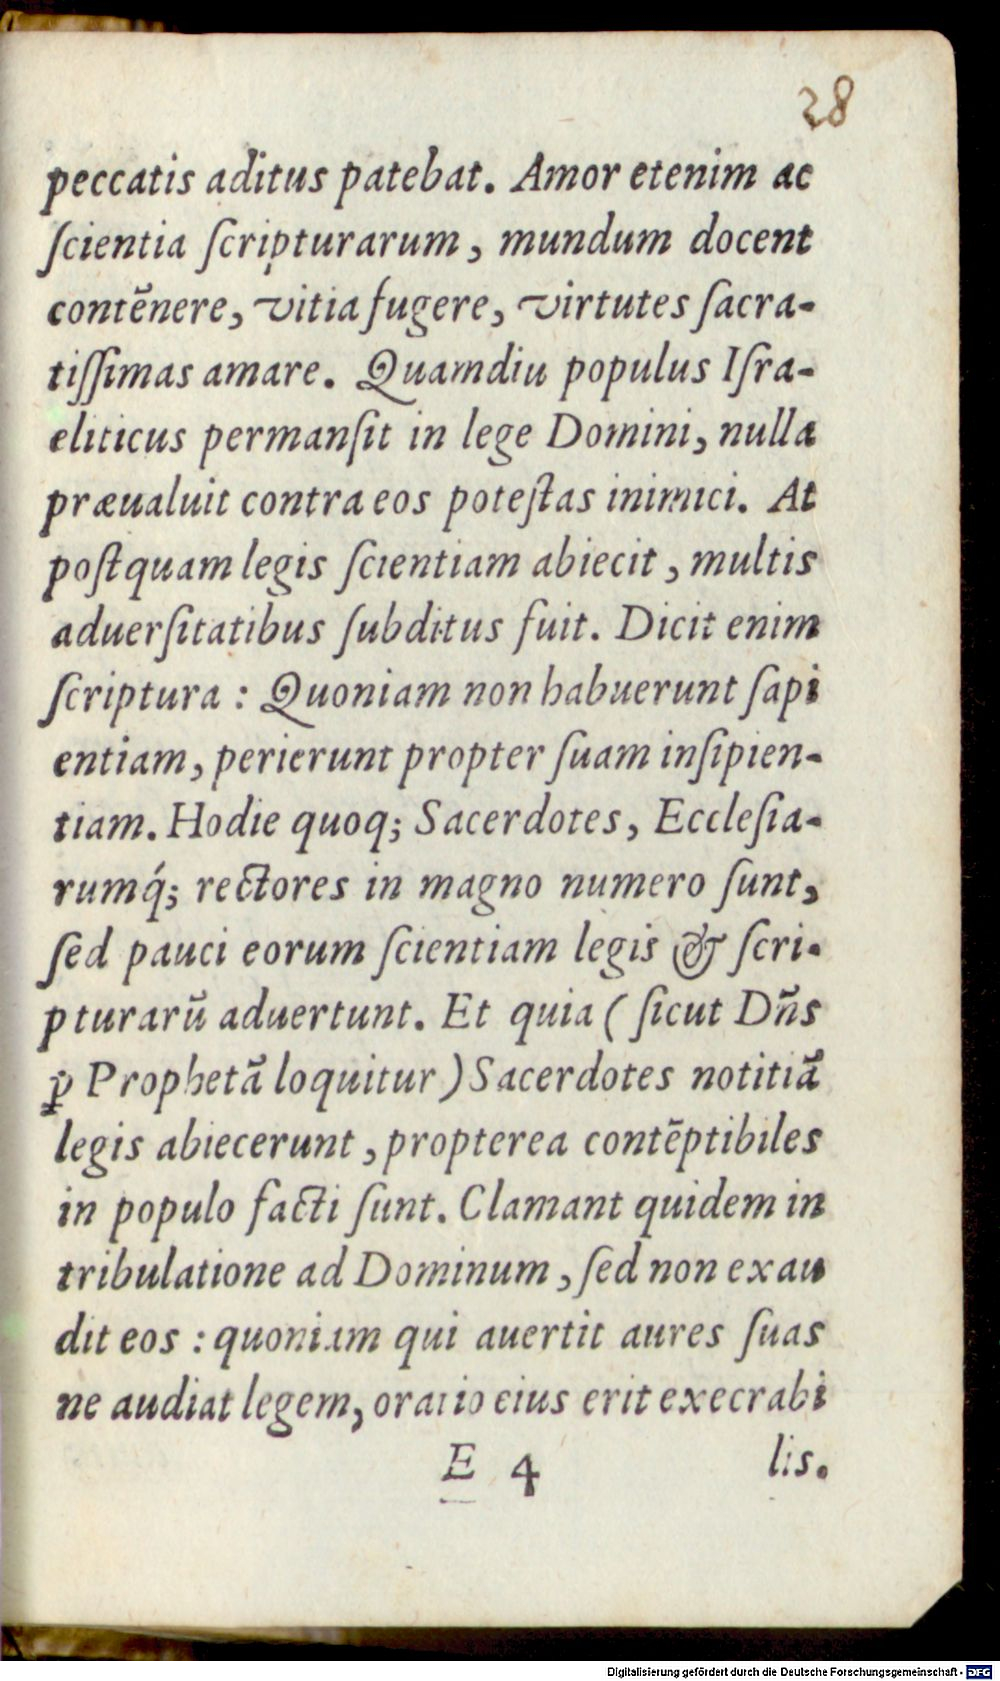 28
peccatis aditus patebat. Amor etenim ac
ſcientia ſcripturarum, mundum docent
contēnere, vitia fugere, virtutes ſacra-
tiſſimas amare. Quamdiu populus Iſra-
eliticus permanſit in lege Domini, nulla
præualuit contra eos poteſtas inimici. At
poſtquam legis ſcientiam abiecit, multis
aduerſitatibus ſubditus fuit. Dicit enim
ſcriptura: Quoniam non habuerunt ſapi
entiam, perierunt propter ſuam inſipien-
tiam. Hodie quoq; Sacerdotes, Eccleſia-
rumq́; rectores in magno numero ſunt,
ſed pauci eorum ſcientiam legis & ſcri-
pturarū aduertunt. Et quia (ſicut Dñs
ꝑ Prophetā loquitur) Sacerdotes notitiā
legis abiecerunt, propterea contēptibiles
in populo facti ſunt. Clamant quidem in
tribulatione ad Dominum, ſed non exau
dit eos: quoniam qui auertit aures ſuas
ne audiat legem, oratio eius erit execrabi
E 4 lis.
Digitalisierung gefördert durch die Deutsche Forschungsgemeinschaft - DFG